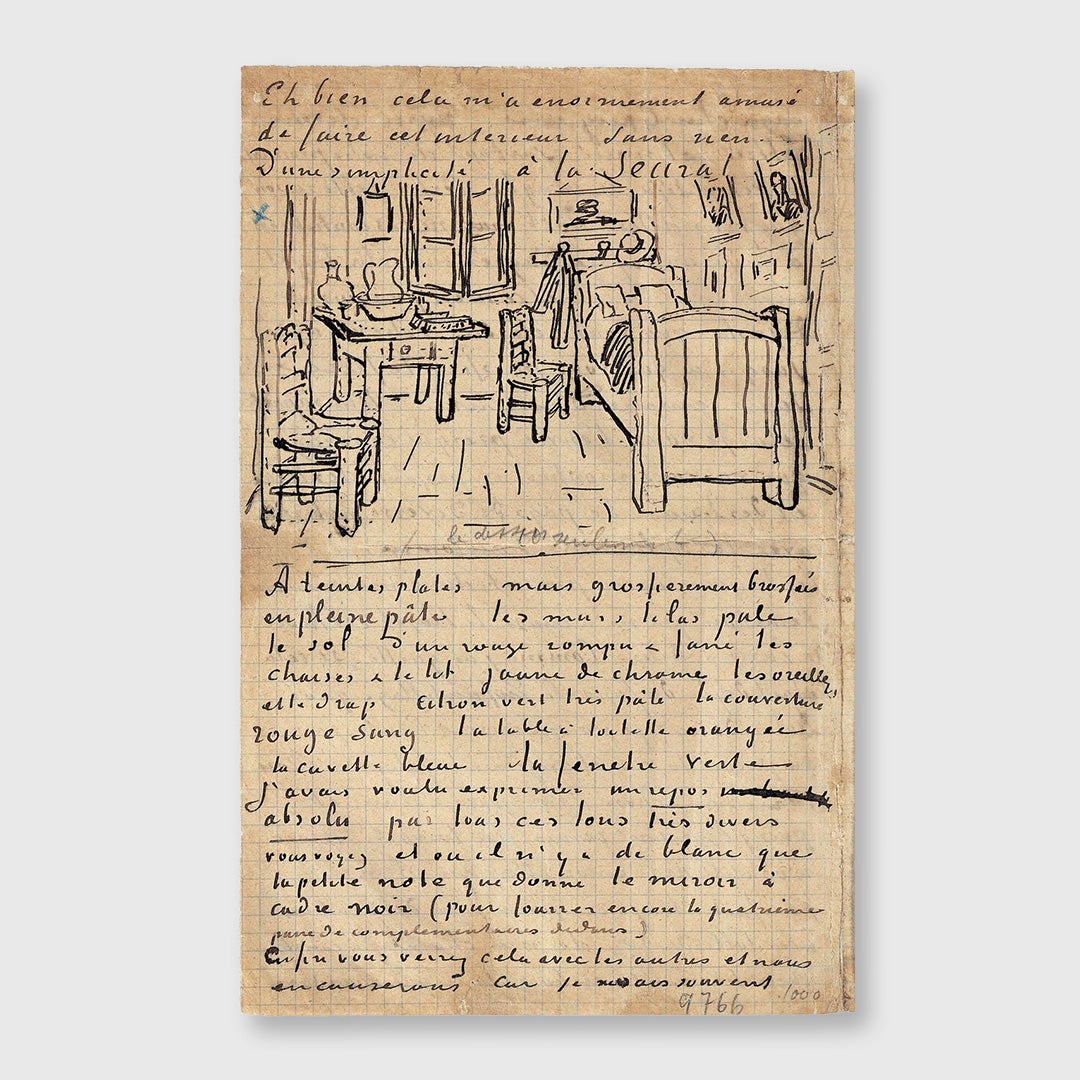 Eh bien cela m'a enormement amusé
de faire cet interieur sans rien.
D'une simplicité à la Seurat
le dessin seulement
A teintes plates mais grossierement brossées
en pleine pâte les murs lilas pale
le sol d'un rouge rompu & fané les
chaises & le lit jaune de chrome les oreillers
et le drap citron vert très pâle la couverture
rouge sang la table à toilette orangée
la cuvette bleue la fenetre verte
J'avais voulu exprimer un repos
absolu par tous ces tons très divers
vous voyez et ou il n'y a de blanc que
la petite note que donne le miroir à
cadre noir (pour fourrer encore la quatrième
paire de complementaires dedans)
Enfin vous verrez cela avec les autres et nous
en causerons car je ne sais souvent
9766 1000